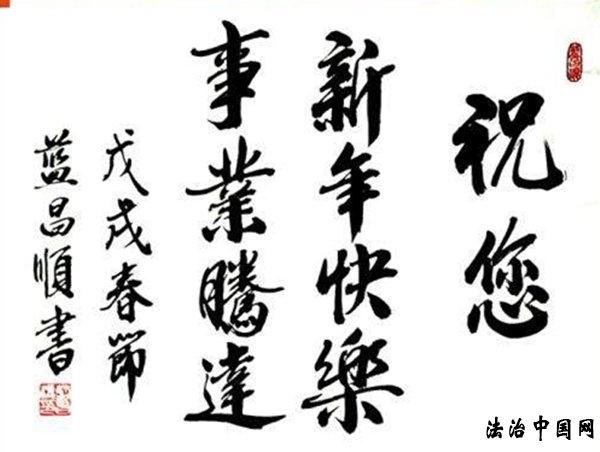 祝您
新年快樂
事業騰達
戊戌春節
藍昌順書
法治中国网